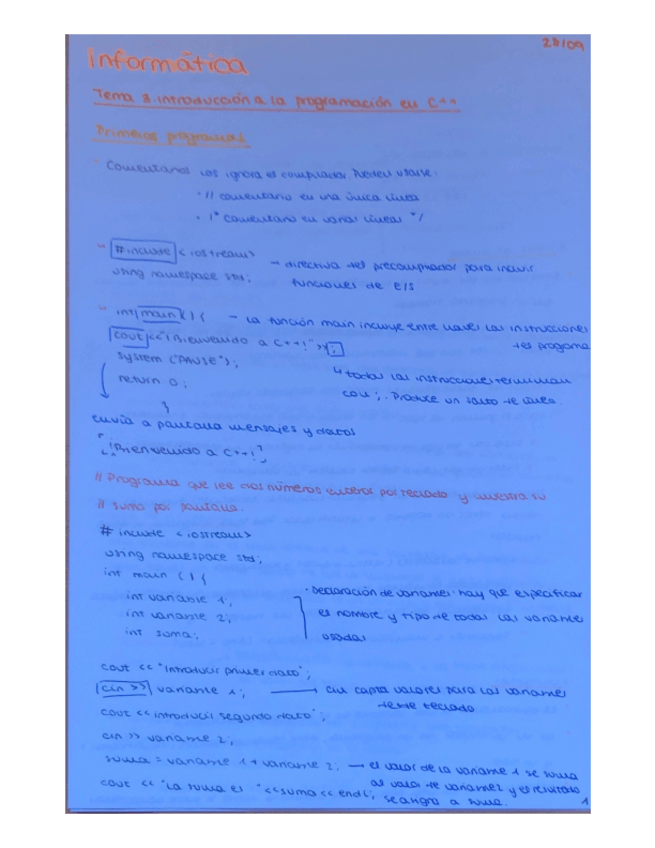 28/09
Informática
Tema 3. introducción a la programación en C++
Primeros programas
- Comentarios los ignora el compilador. Pueden usarse:
· // comentario en una única línea
· /* comentario en varias líneas */
- #include <iostream>
using namespace std;
→ directiva del precompilador para incluir
funciones de E/S
- int main () {
→ La función main incluye entre llaves las instrucciones
del programa
cout << "¡Bienvenido a C++!" ;
system ("PAUSE");
return 0;
}
↳ todas las instrucciones terminan
con ;. Produce un salto de línea.
envía a pantalla mensajes y datos
¡Bienvenido a C++!
// Programa que lee dos números enteros por teclado y muestra su
// suma por pantalla.
# include <iostream>
using namespace std;
int main () {
int variable 1;
int variable 2;
int suma;
· Declaración de variables: hay que especificar
el nombre y tipo de todas las variables
usadas
cout << "Introducir primer dato";
cin >> variable 1;
→ cin capta valores para las variables
desde teclado
cout << introducir segundo dato";
cin >> variable 2;
suma = variable 1 + variable 2;
→ el valor de la variable 1 se suma
al valor de variable2 y el resultado
se asigna a suma.
cout << "La suma es " << suma << endl;
1